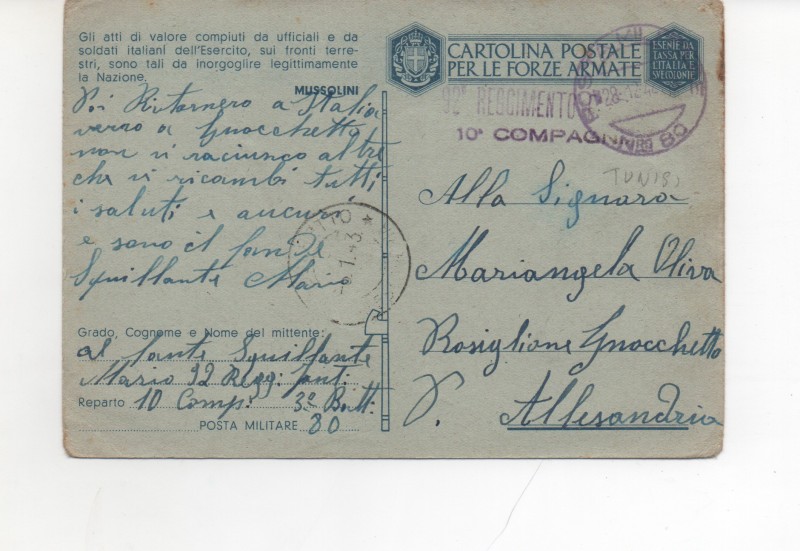 Gli atti di valore compiuti da ufficiali e da
soldati italiani dell'Esercito, sui fronti terre-
stri, sono tali da inorgoglire legittimamente
la Nazione.
MUSSOLINI
Poi Ritornero a Italia
verro a Gnocchetto
non vi raciungo altre
che vi ricambi tutti
i saluti e aucuri
e sono il fante
Squillante Mario
Grado, Cognome e Nome del mittente:
al fante Squillante
Mario 92 Regg. fant.
Reparto 10 Comp. 3º Batt.
POSTA MILITARE 80
CARTOLINA POSTALE
PER LE FORZE ARMATE
ESENTE DA
TASSA PER
L'ITALIA E
SVE COLONIE
92º REGGIMENTO
10ª COMPAGNIA
80
TUNISI
Alla Signora
Mariangela Oliva
Rosiglione Gnocchetto
P. Allesandria